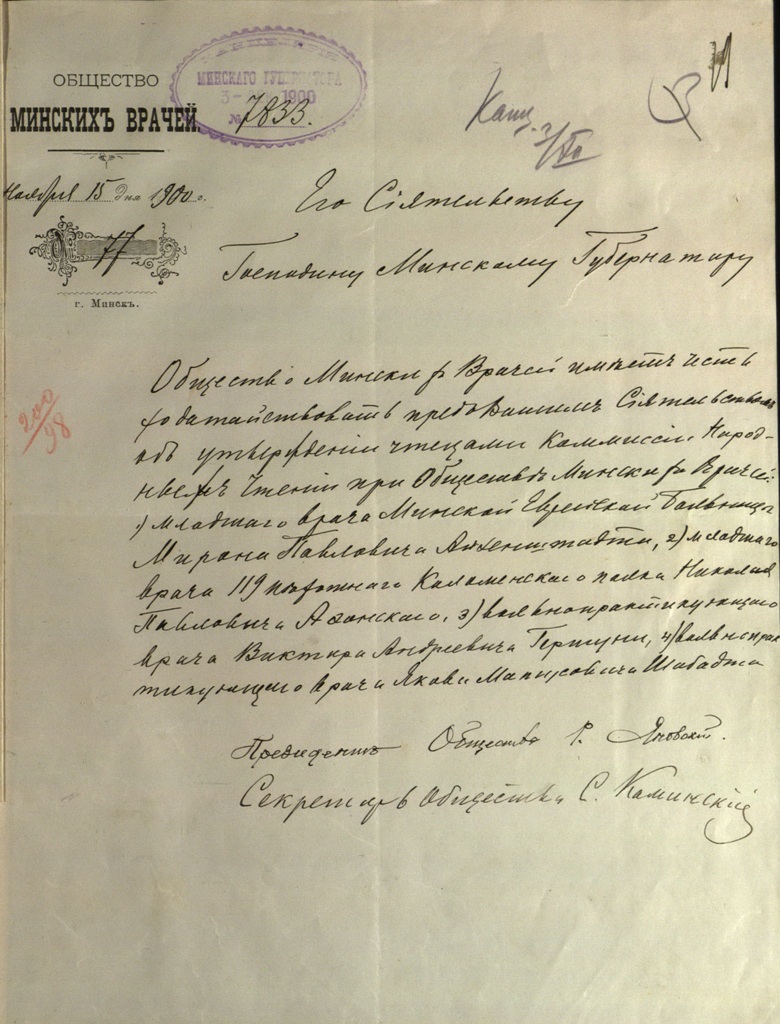 ОБЩЕСТВО
МИНСКИХЪ ВРАЧЕЙ.
МИНСКАГО ГУБЕРНАТОРА
1900
№ 7833.
Ноября 15 дня 1900 г.
77
г. Минскъ.
200/98
Его Сіятельству
Господину Минскому Губернатору
Общество Минскихъ Врачей имѣетъ честь
ходатайствовать предъ Вашимъ Сіятельствомъ
объ утвержденіи чтецами Коммиссіи Народ-
ныхъ Чтеній при Обществѣ Минскихъ Врачей:
1) младшаго врача Минской Еврейской Больницы
Мирона Павловича Айзенштадта, 2) младшаго
врача 119 пѣхотнаго Коломенскаго полка Николая
Павловича Азанскаго, 3) вольнопрактикующаго
врача Виктора Андреевича Гершуни, 4) вольнопрак
тикующаго врача Якова Матусовича Шабада
Президентъ Общества Р. Яновскій.
Секретарь Общества С. Каминскій